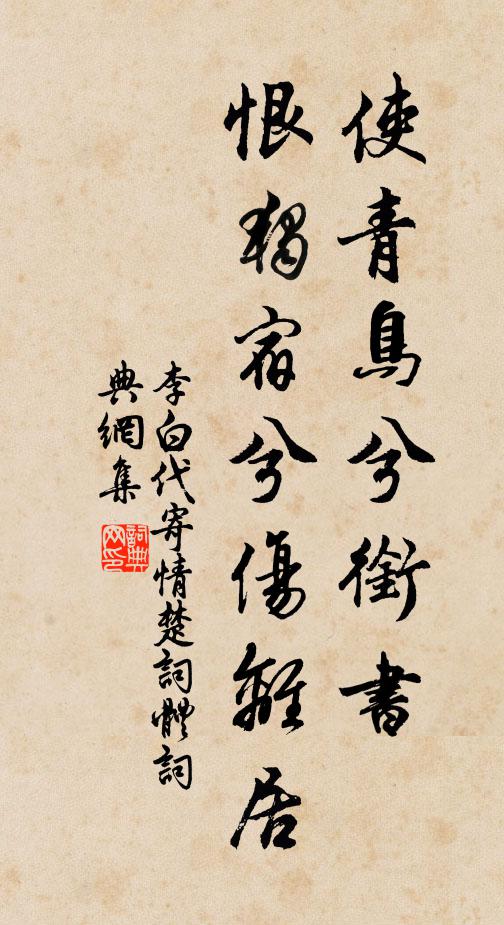 使青鳥兮銜書
恨獨宿兮傷離居
李白代寄情楚詞體詞
典網集
詞典網印